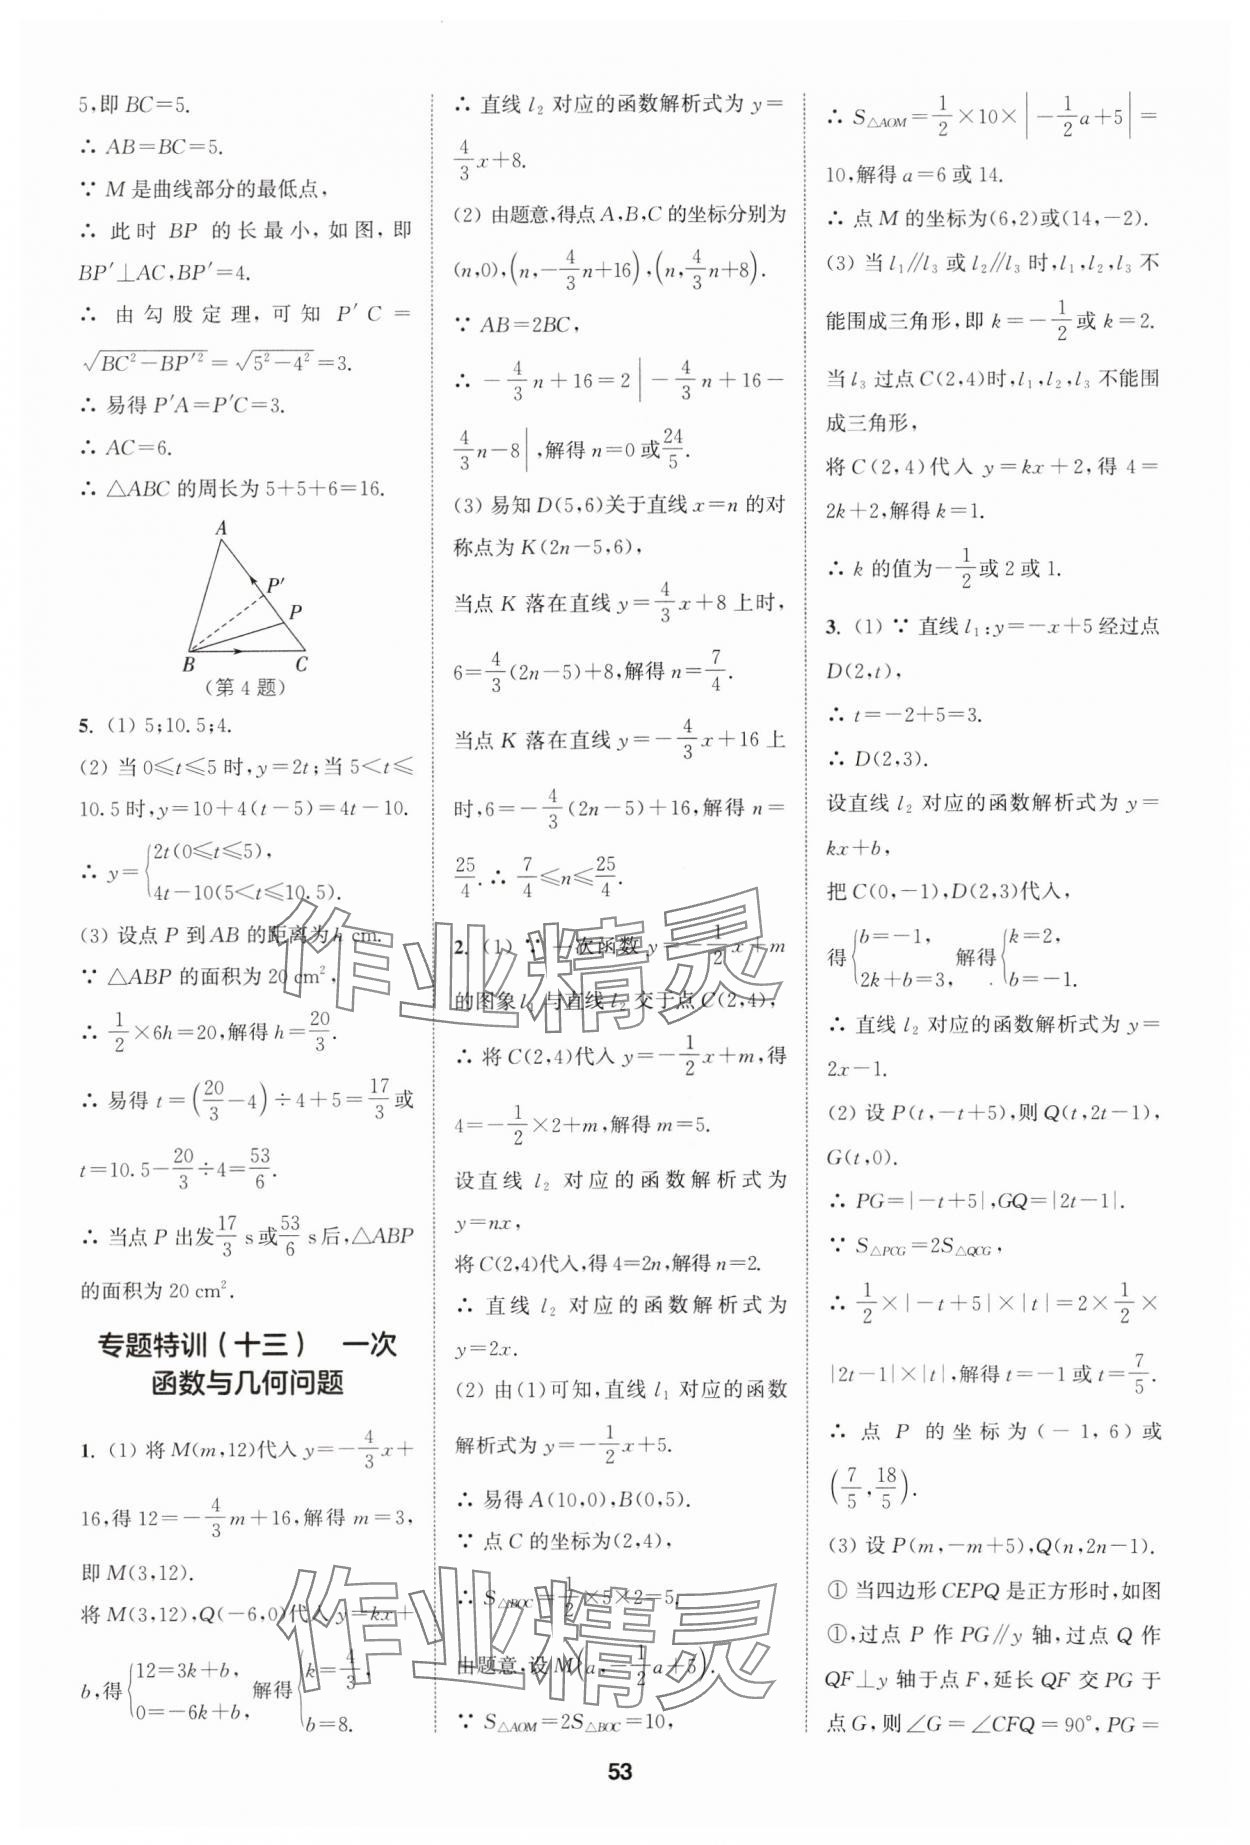 5,即 BC=5.
∴ AB=BC=5.
∵ M 是曲线部分的最低点,
∴ 此时 BP 的长最小,如图,即
BP′⊥AC,BP′=4.
∴ 由勾股定理,可知 P′C=
√(BC²-BP′²)=√(5²-4²)=3.
∴ 易得 P′A=P′C=3.
∴ AC=6.
∴ △ABC 的周长为 5+5+6=16.
A
P′
P
B
C
(第 4 题)
5. (1) 5;10.5;4.
(2) 当 0≤t≤5 时,y=2t;当 5<t≤
10.5 时,y=10+4(t-5)=4t-10.
∴ y={2t(0≤t≤5),
4t-10(5<t≤10.5).
(3) 设点 P 到 AB 的距离为 h cm.
∵ △ABP 的面积为 20 cm²,
∴ 1/2×6h=20,解得 h=20/3.
∴ 易得 t=(20/3-4)÷4+5=17/3或
t=10.5-20/3÷4=53/6.
∴ 当点 P 出发17/3 s或53/6 s后,△ABP
的面积为 20 cm².
专题特训(十三) 一次
函数与几何问题
1. (1) 将 M(m,12)代入 y=-4/3x+
16,得 12=-4/3m+16,解得 m=3,
即 M(3,12).
将 M(3,12),Q(-6,0)代入 y=kx+
b,得{12=3k+b, 0=-6k+b, 解得{k=4/3, b=8.
∴ 直线 l₂ 对应的函数解析式为 y=
4/3x+8.
(2) 由题意,得点 A,B,C 的坐标分别为
(n,0),(n,-4/3n+16),(n,4/3n+8).
∵ AB=2BC,
∴ -4/3n+16=2|-4/3n+16-
4/3n-8|,解得 n=0 或24/5.
(3) 易知 D(5,6)关于直线 x=n 的对
称点为 K(2n-5,6),
当点 K 落在直线 y=4/3x+8 上时,
6=4/3(2n-5)+8,解得 n=7/4.
当点 K 落在直线 y=-4/3x+16 上
时,6=-4/3(2n-5)+16,解得 n=
25/4.∴ 7/4≤n≤25/4.
2. (1) ∵ 一次函数 y=-1/2x+m
的图象 l₁ 与直线 l₂ 交于点 C(2,4),
∴ 将 C(2,4)代入 y=-1/2x+m,得
4=-1/2×2+m,解得 m=5.
设直线 l₂ 对应的函数解析式为
y=nx,
将 C(2,4)代入,得 4=2n,解得 n=2.
∴ 直线 l₂ 对应的函数解析式为
y=2x.
(2) 由(1)可知,直线 l₁ 对应的函数
解析式为 y=-1/2x+5.
∴ 易得 A(10,0),B(0,5).
∵ 点 C 的坐标为(2,4),
∴ S△BOC=1/2×5×2=5.
由题意,设 M(a,-1/2a+5).
∵ S△AOM=2S△BOC=10,
∴ S△AOM=1/2×10×|-1/2a+5|=
10,解得 a=6 或 14.
∴ 点 M 的坐标为(6,2)或(14,-2).
(3) 当 l₁∥l₃ 或 l₂∥l₃ 时,l₁,l₂,l₃ 不
能围成三角形,即 k=-1/2或 k=2.
当 l₃ 过点 C(2,4)时,l₁,l₂,l₃ 不能围
成三角形,
将 C(2,4)代入 y=kx+2,得 4=
2k+2,解得 k=1.
∴ k 的值为-1/2或 2 或 1.
3. (1) ∵ 直线 l₁:y=-x+5 经过点
D(2,t),
∴ t=-2+5=3.
∴ D(2,3).
设直线 l₂ 对应的函数解析式为 y=
kx+b,
把 C(0,-1),D(2,3)代入,
得{b=-1, 2k+b=3, 解得{k=2, b=-1.
∴ 直线 l₂ 对应的函数解析式为 y=
2x-1.
(2) 设 P(t,-t+5),则 Q(t,2t-1),
G(t,0).
∴ PG=|-t+5|,GQ=|2t-1|.
∵ S△PCG=2S△QCG,
∴ 1/2×|-t+5|×|t|=2×1/2×
|2t-1|×|t|,解得 t=-1 或 t=7/5.
∴ 点 P 的坐标为(-1,6)或
(7/5,18/5).
(3) 设 P(m,-m+5),Q(n,2n-1).
① 当四边形 CEPQ 是正方形时,如图
①,过点 P 作 PG∥y 轴,过点 Q 作
QF⊥y 轴于点 F,延长 QF 交 PG 于
点 G,则∠G=∠CFQ=90°,PG=
53
作业精灵
作业精灵